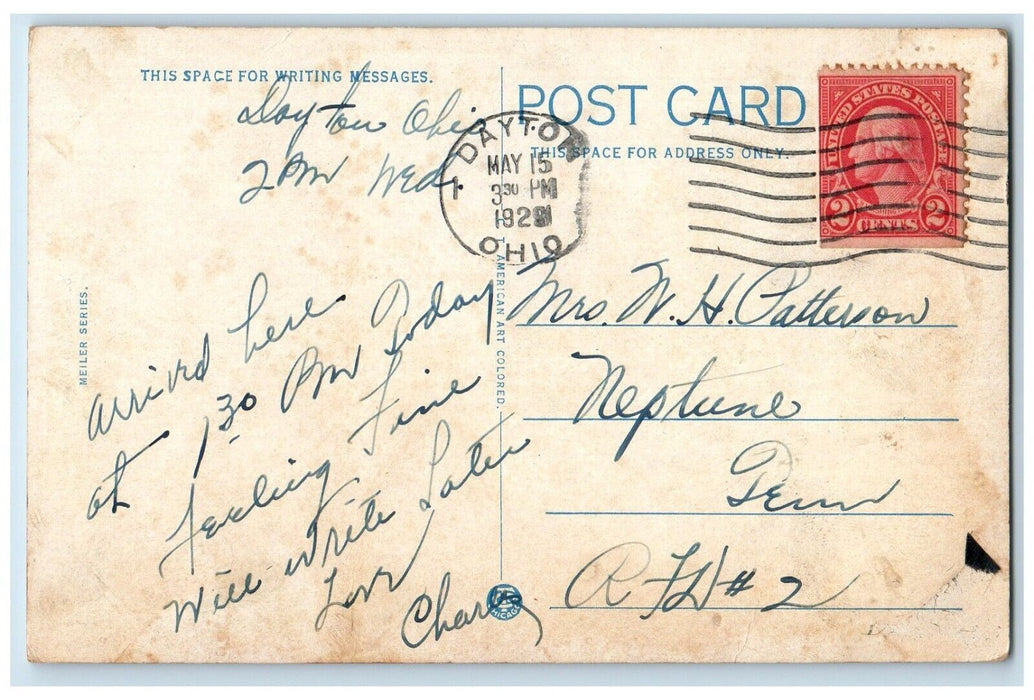 THIS SPACE FOR WRITING MESSAGES.
Dayton Ohio
2 PM Wed
arrived here
at 1 30 PM Today
feeling Fine
Will write Later
Love
MEILER SERIES.
POST CARD
THIS SPACE FOR ADDRESS ONLY.
DAYTON
1
MAY 15
3 30 PM
1929
OHIO
UNITED STATES POSTAGE
2 2
CENTS
AMERICAN ART COLORED.
CHICAGO
Mrs. W. H. Patterson
Neptune
Tenn
R F D # 2